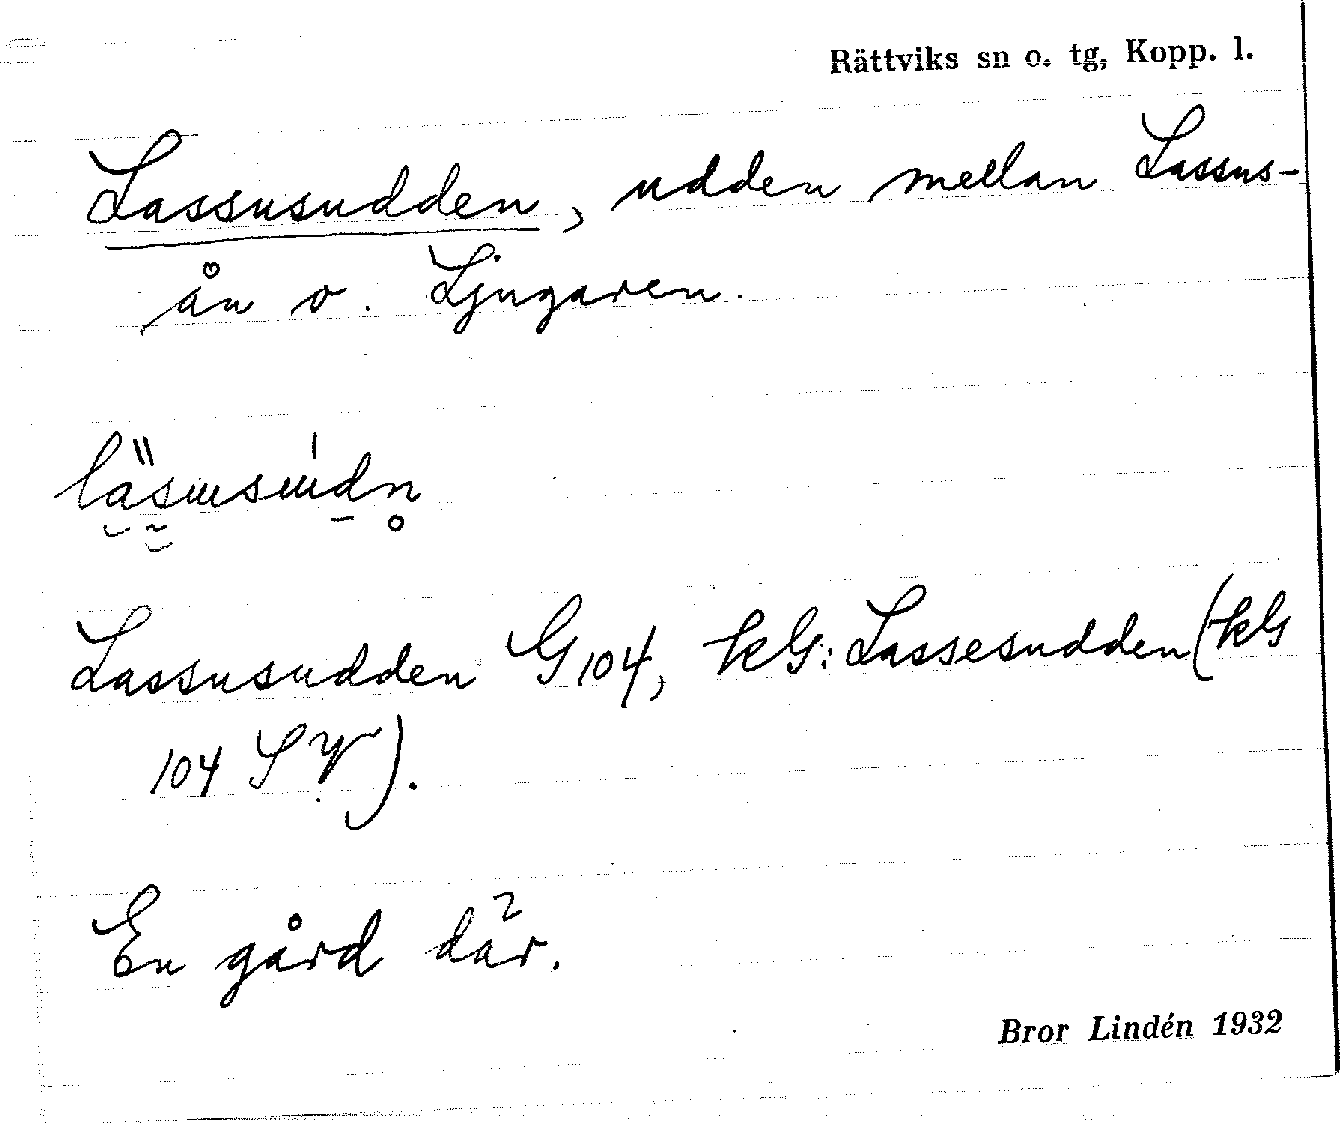 Rättviks sn o. tg, Kopp. l.
Lassusudden, udden mellan Lassus-
ån o. Ljugaren.
Lassusudden G104, kG: Lassesudden (kG
104 SV).
En gård där.
Bror Lindén 1932